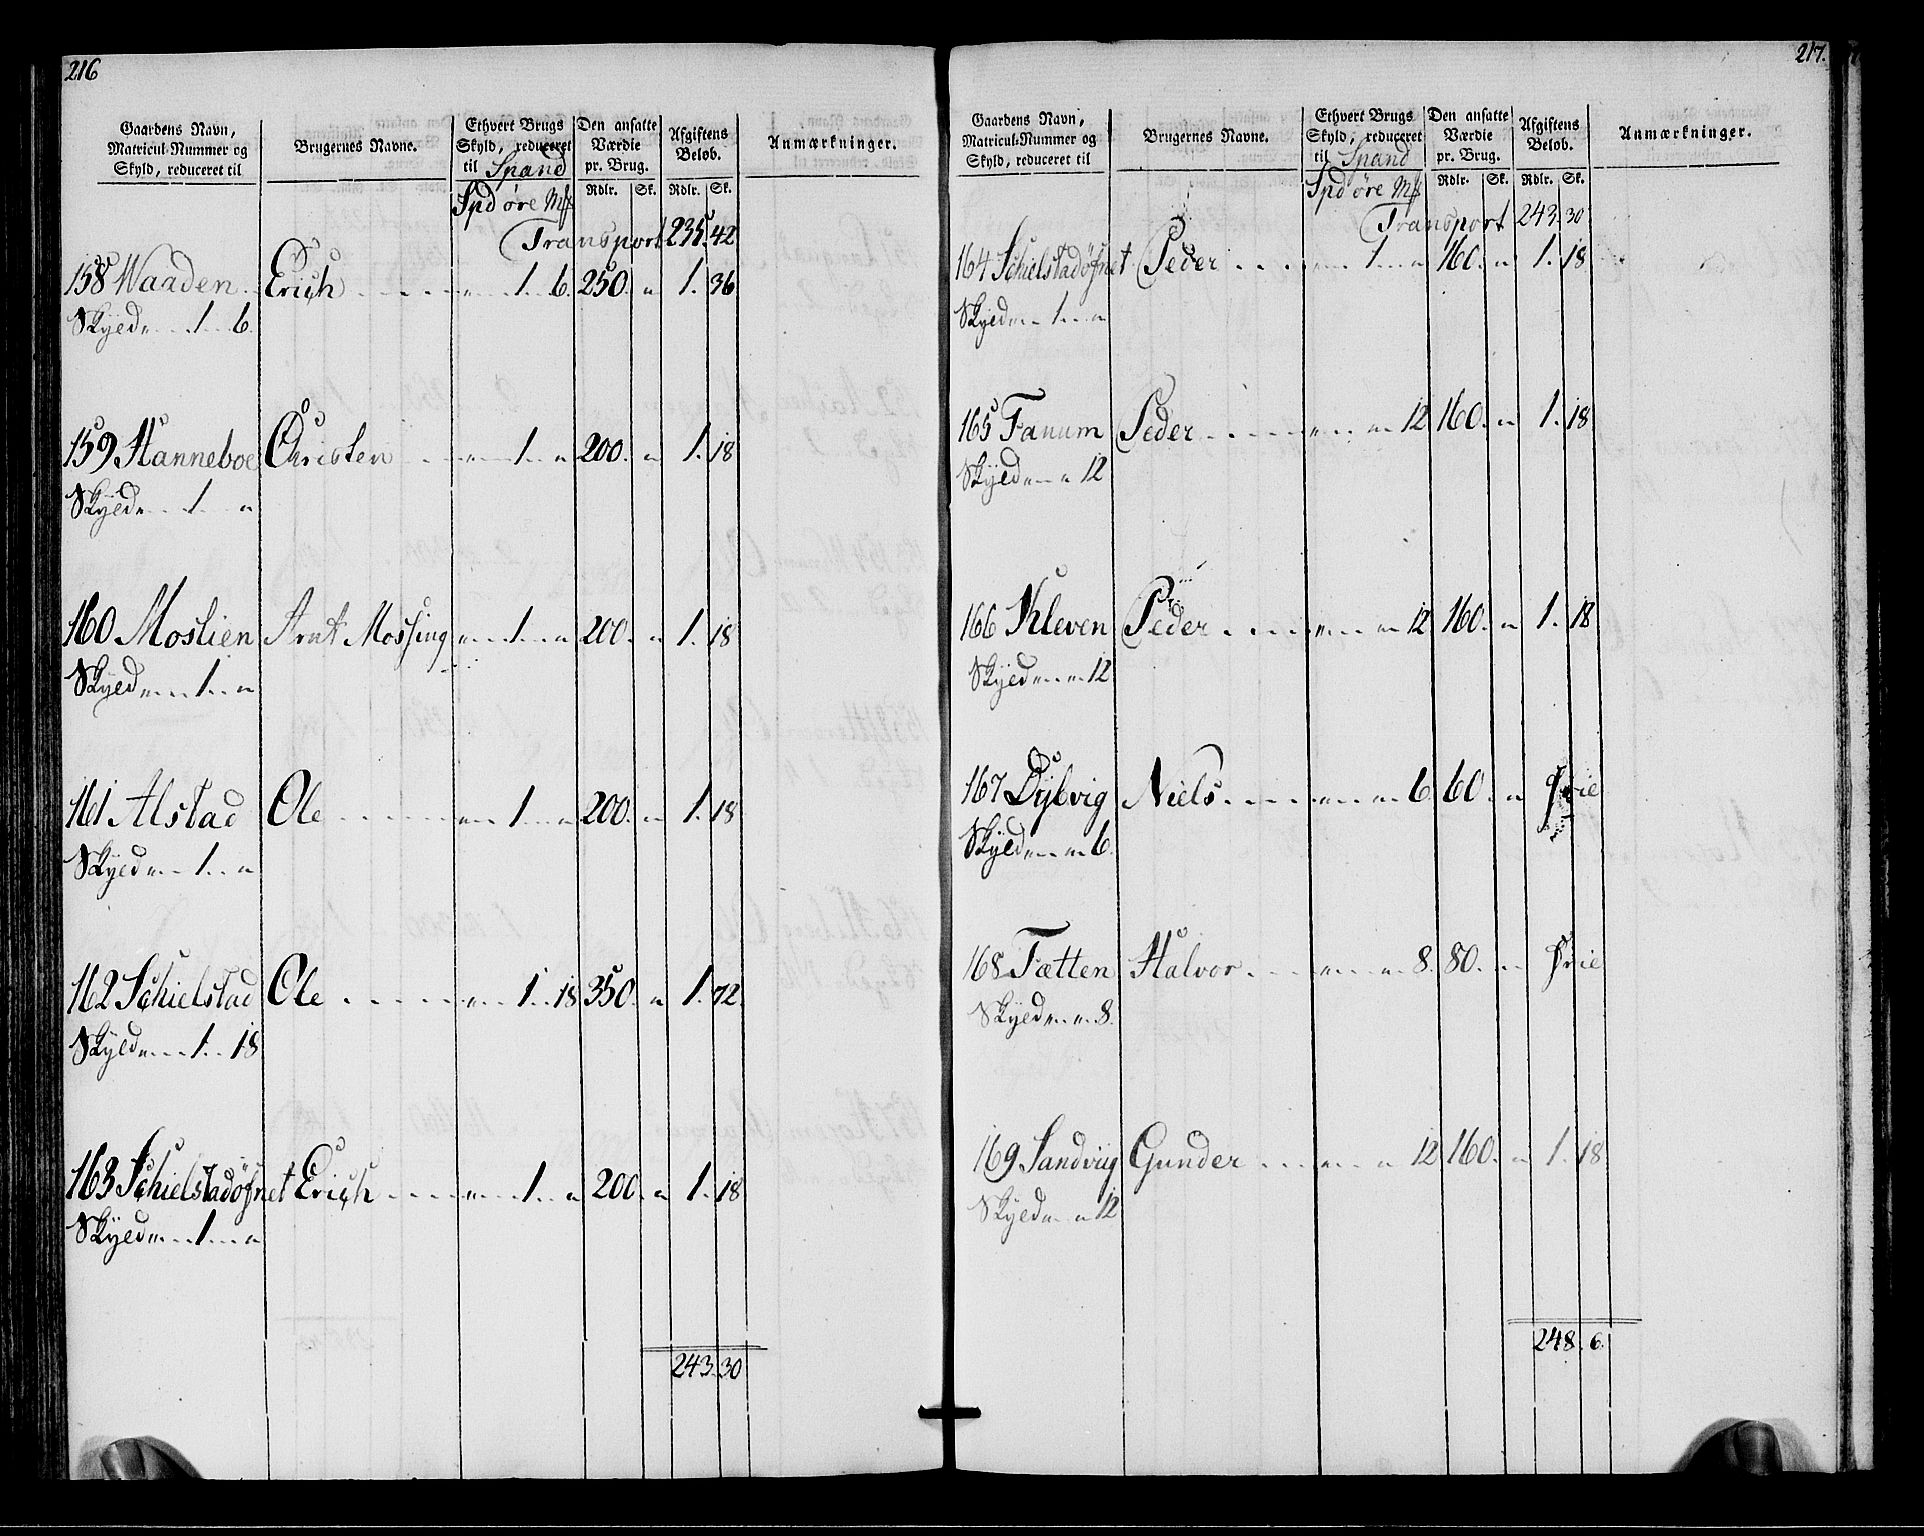 216
Gaardens Navn, Matricul-Nummer og Skyld, reduceret til
Brugernes Navne.
Ethvert Brugs Skyld, reduceret til Spand
Den ansatte Værdie pr. Brug.
Afgiftens Beløb.
Anmærkninger.
Spd øre Mk Rdlr. Sk. Rdlr. Sk.
Transport 235. 42
158 Waaden Erich . . . . . „ . . 1. 6. 250. „ 1. 36
Skyld „ . . 1 . . 6.
159 Hanneboe Christen . . „ . . 1. „ 200. „ 1. 18
Skyld „ . . 1 . . „
160 Moslien Arnt Mossing „ . . 1. . „ 200. „ 1. 18
Skyld „ . . 1 . . „
161 Alstad Ole . . . . . „ . . 1. . „ 200. „ 1. 18
Skyld „ . . 1 . . „
162 Schielstad Ole . . . . . „ . . 1. . 18 350. „ 1. 72.
Skyld „ . . 1. . 18
163 Schielstadøfnet Erich . . . . „ . . 1. . „ 200. „ 1. 18
Skyld „ . . 1 . . „
243. 30
217.
Gaardens Navn, Matricul-Nummer og Skyld, reduceret til
Brugernes Navne.
Ethvert Brugs Skyld, reduceret til Spand
Den ansatte Værdie pr. Brug.
Afgiftens Beløb.
Anmærkninger.
Spd øre Mk Rdlr. Sk. Rdlr. Sk.
Transport 243. 30
164 Schielstadøfnet Peder . . . „ . . 1. . „ 160. „ 1. 18
Skyld „ . . 1 . . „
165 Fanum Peder . . . . „ . . „ 12 160. „ 1. 18
Skyld „ . . „ 12
166 Kleven Peder . . . . „ . . „ 12. 160. „ 1. 18
Skyld „ . . „ 12
167 Dybvig Niels . . . . „ . . „ 6. 60. „ frie
Skyld „ . . „ 6.
168 Tætten Halvor . . . „ . . „ 8. 80. „ frie
Skyld „ . . „ 8.
169 Sandviig Gunder . . . „ . . „ 12 160. „ 1. 18
Skyld „ . . „ 12
248. 6.